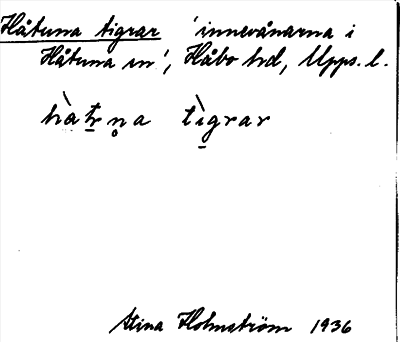 Håtuna tigrar 'innevånarna i
Håtuna sn', Håbo hd, Upps. l.
hàtn̥a tìgrar
Stina Holmström 1936